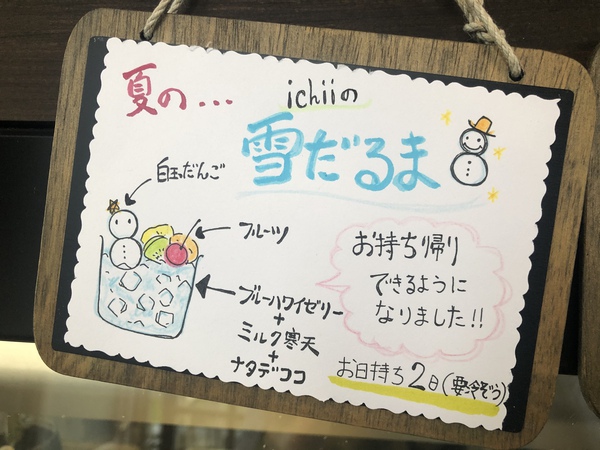 夏の...
ichiiの
雪だるま
白玉だんご
フルーツ
ブルーハワイゼリー
+
ミルク寒天
+
ナタデココ
お持ち帰り
できるように
なりました!!
お日持ち2日(要冷ぞう)